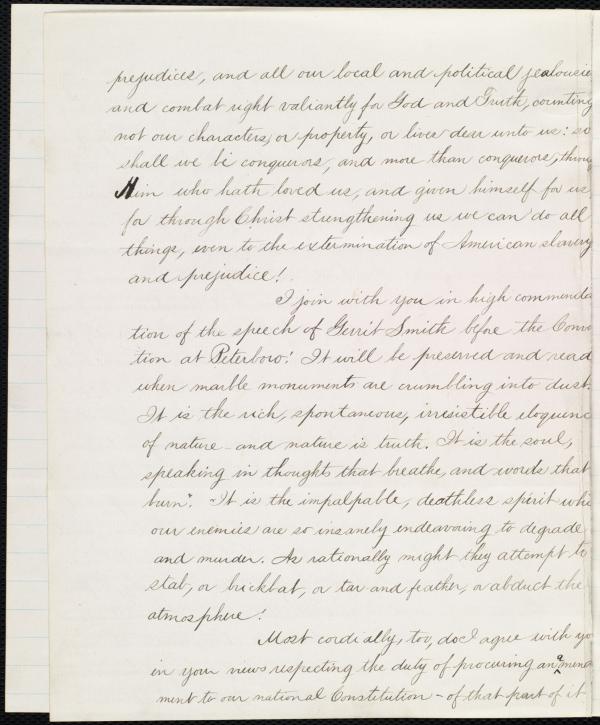 prejudices, and all our local and political jealousie
and combat right valiantly for God and Truth, counting
not our characters, or property, or lives dear unto us: so
shall we be conquerors, and more than conquerors, throu
Him who hath loved us, and given himself for us
for through Christ strengthening us we can do all
things, even to the extermination of American slavery
and prejudice!
I join with you in high commenda
tion of the speech of Gerrit Smith before the Conv
tion at Peterboro! It will be preserved and read
when marble monuments are crumbling into dust.
It is the rich, spontaneous, irrisistible eloquenc
of nature - and nature is truth. It is the soul,
speaking in thoughts that breathe, and words that
burn". It is the impalpable, deathless spirit whi
our enemies are so insanely endeavoring to degrade
and murder. As rationally might they attempt to
stab, or brickbat, or tar and feather, or abduct the
atmosphere!
Most cordially, too, do I agree with yo
in your views respecting the duty of procuring an amend
ment to our national Constitution - of that part of it